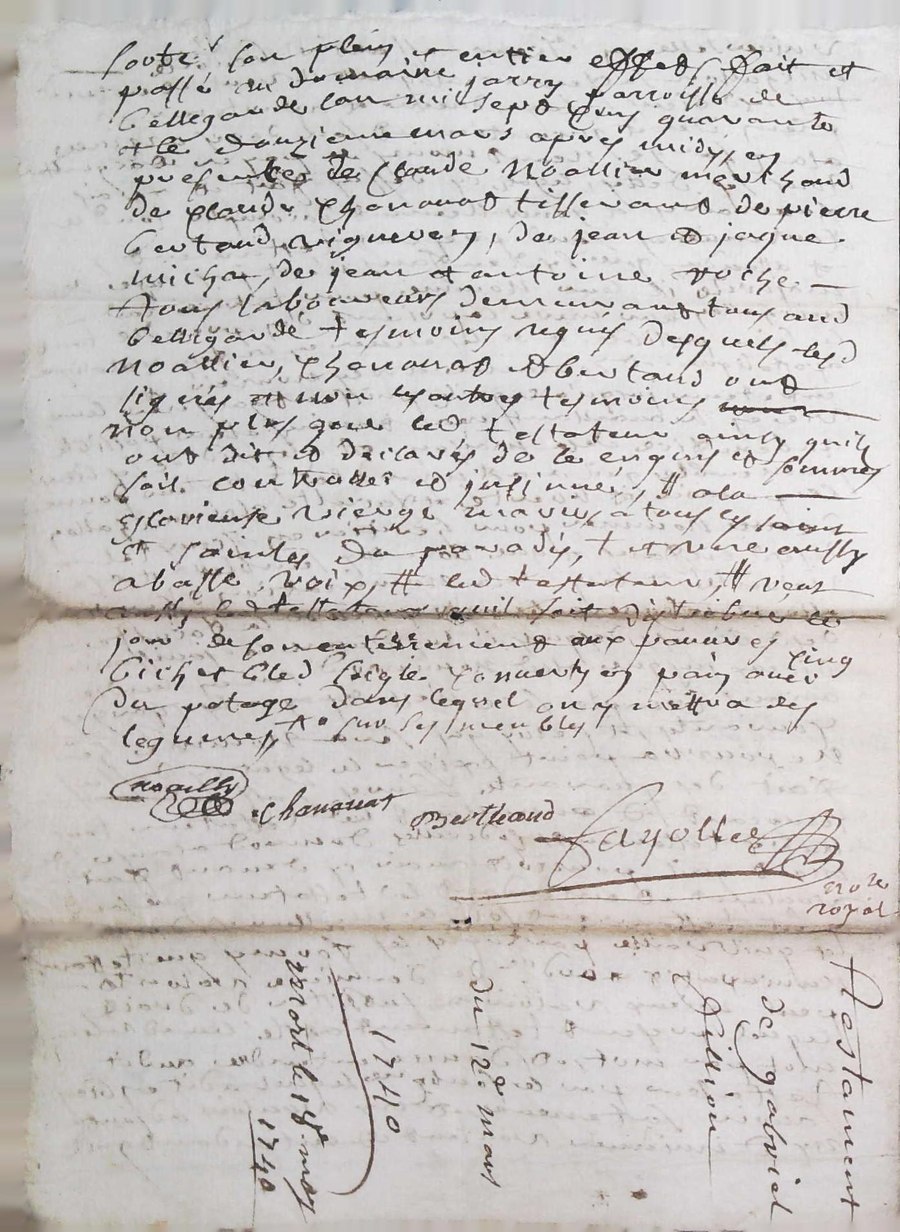 sorte son plein et entier effed, fait et
passé au domaine jarry parroisse de
bellegarde l'an mil sept cens quarante
et le douzieme mars apres midy, en
presence de Claude Noallier marchand
de Claude Chanouat tisserand de pierre
Bertaud vigneron, de jean et jaque
micha, de jean et antoine roche
tous laboureurs demeurans tous aud
bellegarde tesmoins requis desquels lesd
Noallier, Chanouat et bertaud ont
signés et non les autres tesmoins
non plus que led testateur ainsy quils
ont dit et declarés de ce enquis et sommés
soit controllé et insinué, # a la
glorieuse vierge marie, a tous les saints
et saintes du paradis, + et une aussy
a basse voix, # led testateur, # veut
aussy led testateur quil soit distribué le
jour de son enterrement aux pauures cinq
bichet bled seigle conuerty en pain auec
du potage dans lequel on y mettra des
legumes, sur ses meubles
noailly
Chanouat
Bertheaud
fayolles
no.re
royal
Testament
de gabriel
fillion
du 12e mars
1740
mort le 18e may
1740